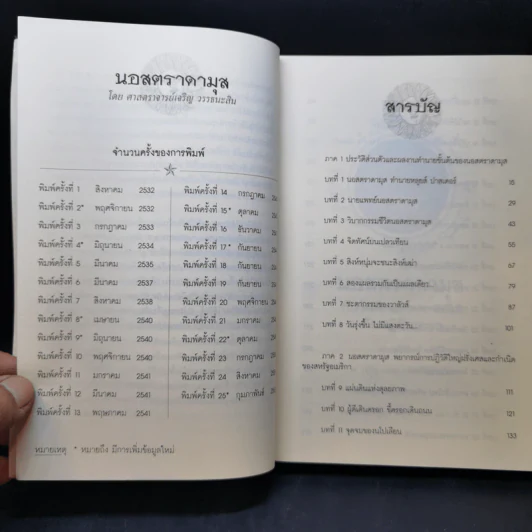 นอสตราดามุส
โดย ศาสตราจารย์เจริญ วรรธนะสิน
จำนวนครั้งของการพิมพ์
พิมพ์ครั้งที่ 1 สิงหาคม 2532
พิมพ์ครั้งที่ 2* พฤศจิกายน 2532
พิมพ์ครั้งที่ 3 กรกฎาคม 2533
พิมพ์ครั้งที่ 4* มิถุนายน 2534
พิมพ์ครั้งที่ 5 มีนาคม 2535
พิมพ์ครั้งที่ 6 มีนาคม 2537
พิมพ์ครั้งที่ 7 สิงหาคม 2538
พิมพ์ครั้งที่ 8* เมษายน 2540
พิมพ์ครั้งที่ 9* มิถุนายน 2540
พิมพ์ครั้งที่ 10 พฤศจิกายน 2540
พิมพ์ครั้งที่ 11 มกราคม 2541
พิมพ์ครั้งที่ 12 มีนาคม 2541
พิมพ์ครั้งที่ 13 พฤษภาคม 2541
พิมพ์ครั้งที่ 14 กรกฎาคม
พิมพ์ครั้งที่ 15* ตุลาคม
พิมพ์ครั้งที่ 16 ธันวาคม
พิมพ์ครั้งที่ 17* กันยายน
พิมพ์ครั้งที่ 18 กันยายน
พิมพ์ครั้งที่ 19 กันยายน
พิมพ์ครั้งที่ 20 พฤศจิกายน
พิมพ์ครั้งที่ 21 มกราคม
พิมพ์ครั้งที่ 22* ตุลาคม
พิมพ์ครั้งที่ 23 กรกฎาคม
พิมพ์ครั้งที่ 24 สิงหาคม
พิมพ์ครั้งที่ 25* กุมภาพันธ์
หมายเหตุ * หมายถึง มีการเพิ่มข้อมูลใหม่
สารบัญ
ภาค 1 ประวัติส่วนตัวและผลงานทำนายชั้นต้นของนอสตราดามุส
บทที่ 1 นอสตราดามุส ทำนายหลุยส์ ปาสเตอร์ 15
บทที่ 2 นายแพทย์นอสตราดามุส 29
บทที่ 3 วิบากกรรมชีวิตนอสตราดามุส 43
บทที่ 4 จิตทัศน์บนเปลวเทียน 55
บทที่ 5 สิงห์หนุ่มจะชนะสิงห์เฒ่า 67
บทที่ 6 สองแผลรวมกันเป็นแผลเดียว... 79
บทที่ 7 ชะตากรรมของวาลัวส์
บทที่ 8 วันรุ่งขึ้น ไม่มีแสงตะวัน...
ภาค 2 นอสตราดามุส พยากรณ์การปฏิวัติใหญ่ฝรั่งเศสและกำเนิด
ของสหรัฐอเมริกา
บทที่ 9 แผ่นดินแห่งดุลยภาพ 111
บทที่ 10 ผู้ดีเดินตรอก ขี้ครอกเดินถนน 121
บทที่ 11 จุดจบของนโปเลียน 133